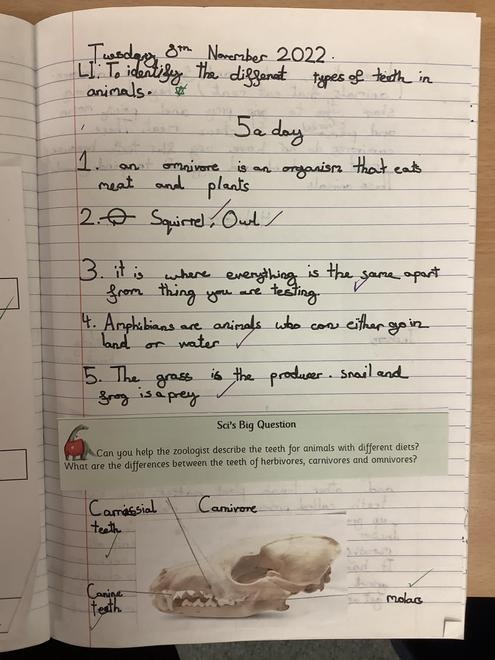 Tuesday 8th November 2022.
LI: To identify the different types of teeth in
animals.
5 a day
1. an omnivore is an organism that eats
meat and plants
2. Squirrel, Owl
3. it is where everything is the same apart
from thing you are testing.
4. Amphibians are animals who can either go in
land or water
5. The grass is the producer. snail and
frog is a prey
Sci's Big Question
Can you help the zoologist describe the teeth for animals with different diets?
What are the differences between the teeth of herbivores, carnivores and omnivores?
Carnassial Carnivore
teeth
Canine
teeth
molars